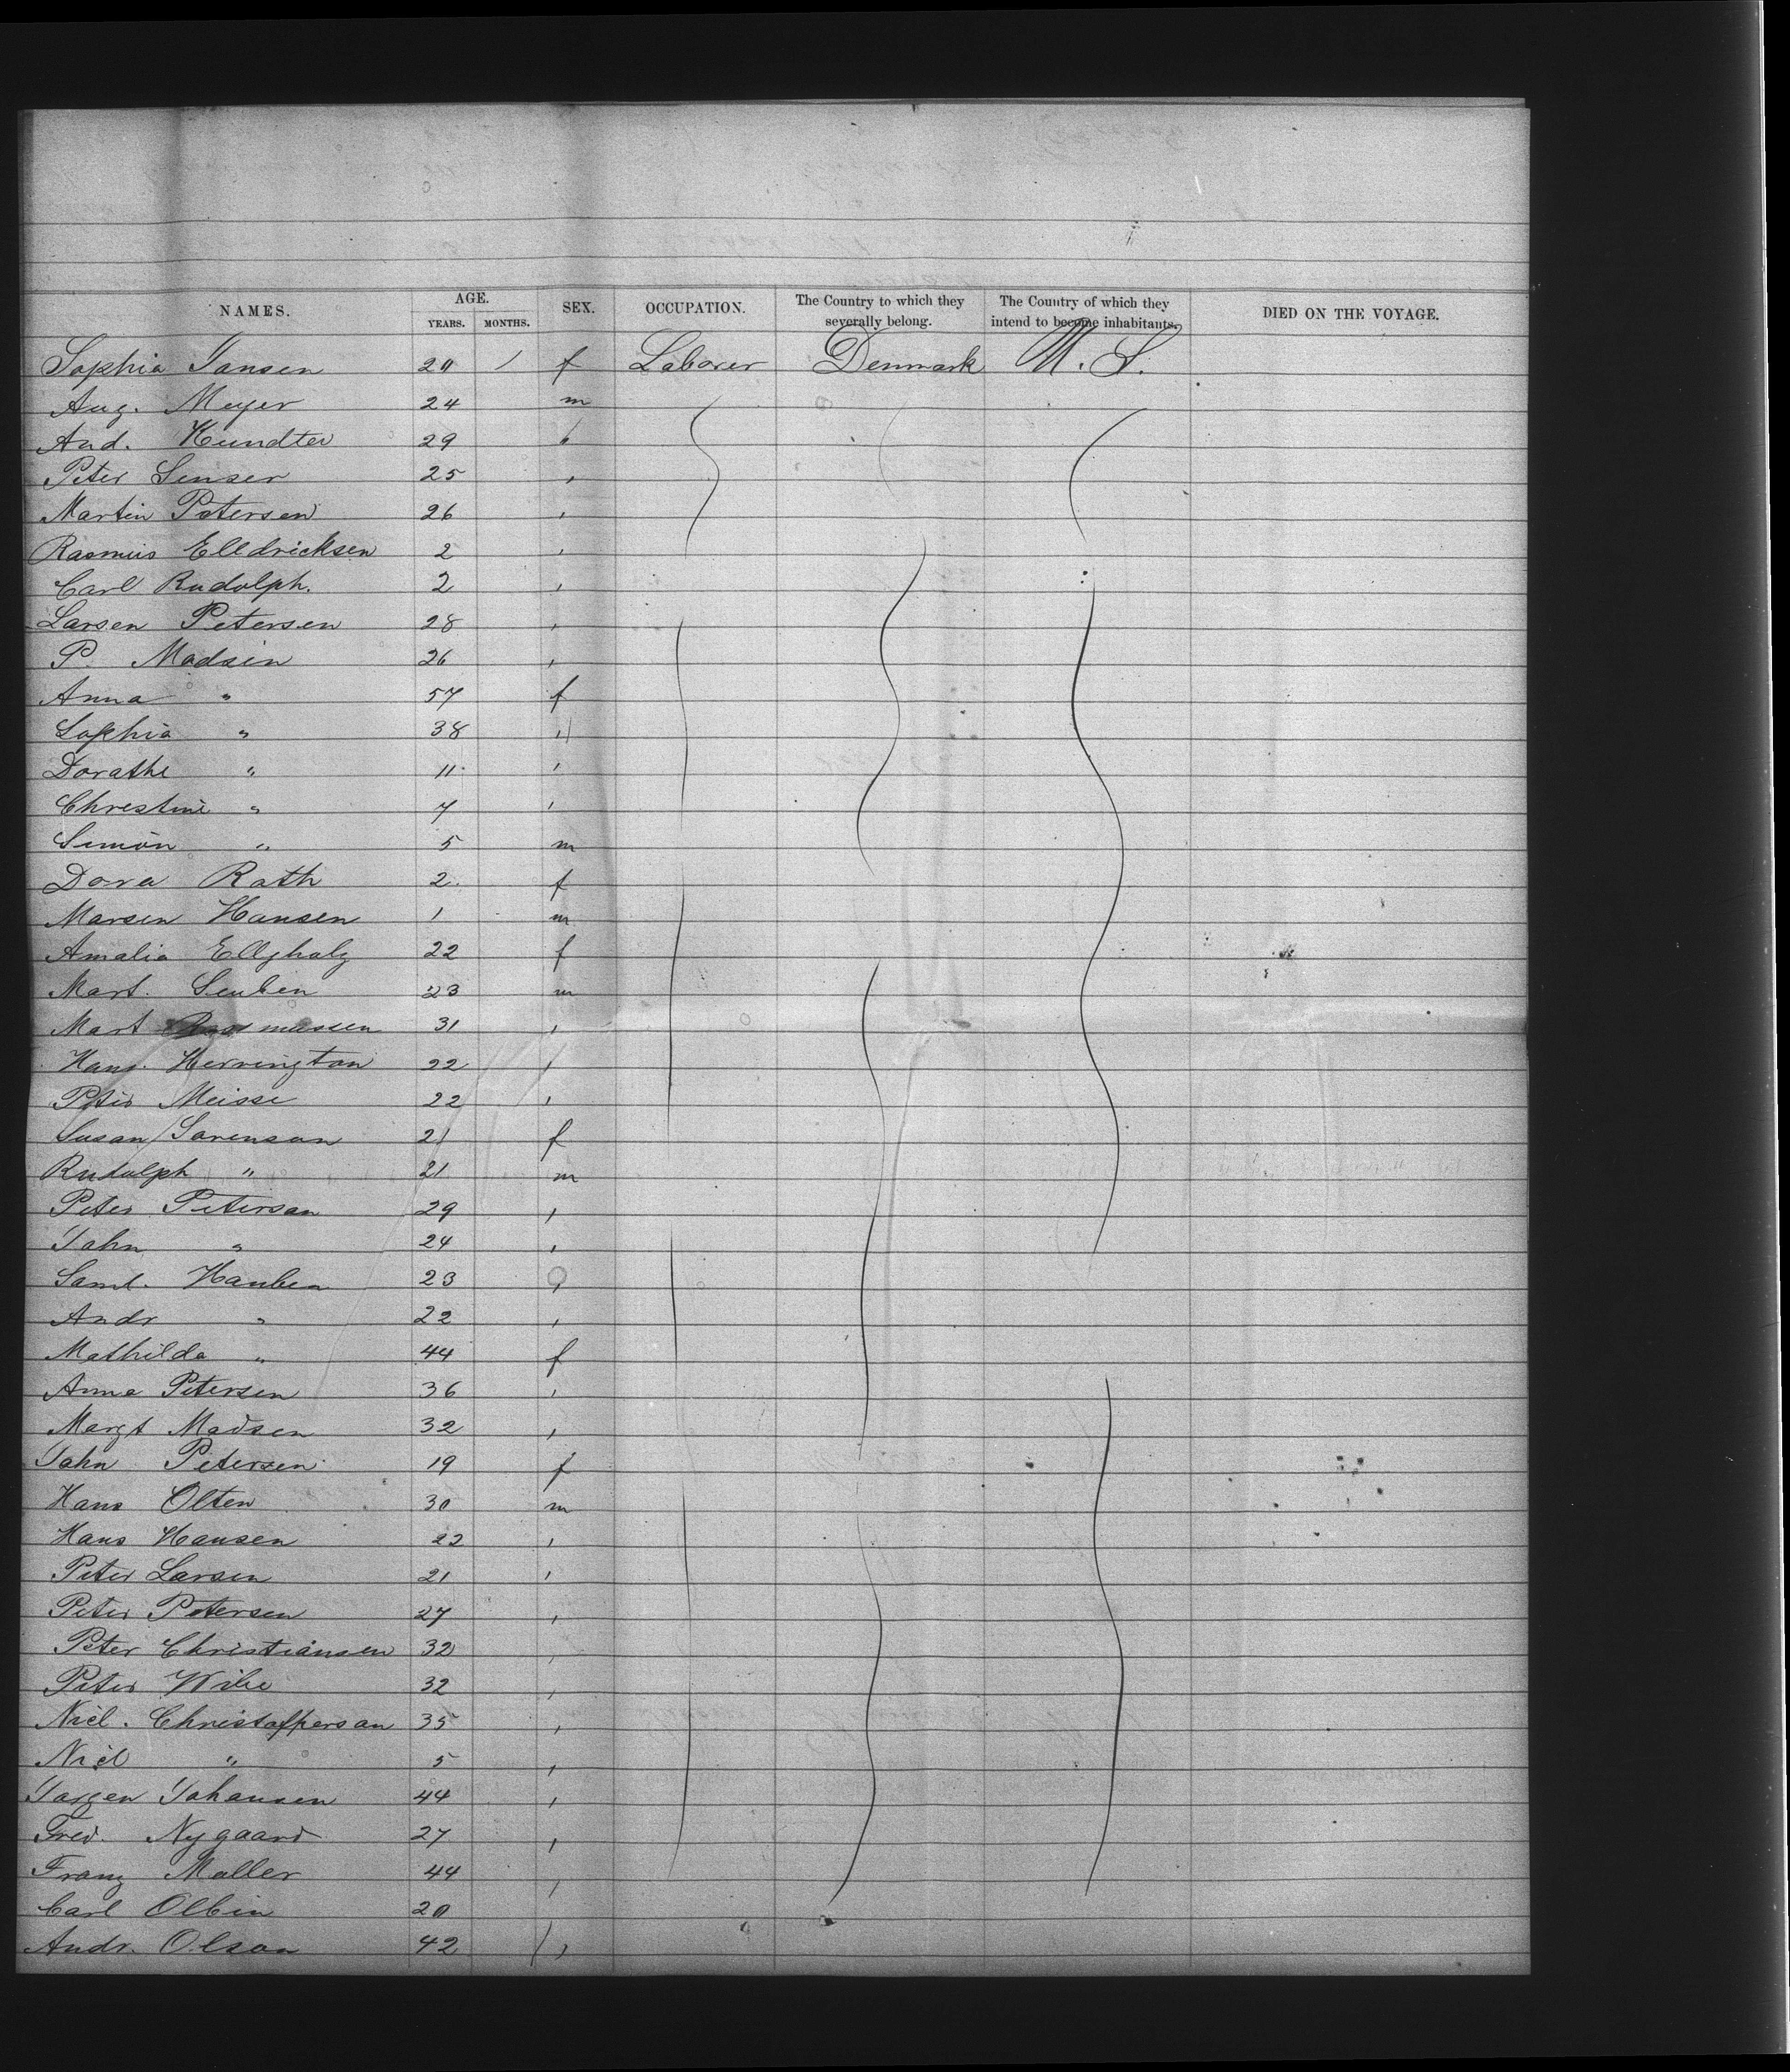 NAMES. AGE. YEARS. MONTHS. SEX. OCCUPATION. The Country to which they severally belong. The Country of which they intend to become inhabitants. DIED ON THE VOYAGE.
Sophia Jansen 20 / f Laborer Denmark U.S.
Aug. Meyer 24 m
And. Kundter 29 "
Peter Senser 25 "
Martin Petersen 26 "
Rasmus Elldricksen 2 "
Carl Rudolph. 2 "
Larsen Petersen 28 "
P. Madsin 26 "
Anna " 57 f
Sophia " 38 "
Dorathe " 11 "
Chrestine " 7 "
Simon " 5 m
Dora Rath 2 f
Marsen Hansen 1 m
Amalia 22 f
Mart. Seuben 23 m
Mart Rasmussen 31 "
Hans. Herrington 22 "
Peter Meisse 22 "
Susan Sorenson 21 f
Rudolph " 21 m
Peter Peterson 29 "
John " 24 "
Saml. Hauben 23 "
Andr " 22 "
Mathilda " 44 f
Anna Petersen 36 "
Margt Madsen 32 "
John Petersen 19 f
Hans Olten 30 m
Hans Hansen 22 "
Peter Larsen 21 "
Peter Petersen 27 "
Peter Christiansen 32 "
Peter Wibe 32 "
Niel. Christofferson 35 "
Niel " 5 "
Jorgen Johansen 44 "
Fred. Nygaard 27 "
Franz Moller 44 "
Carl Olbin 20
Andr. Olson 42 "